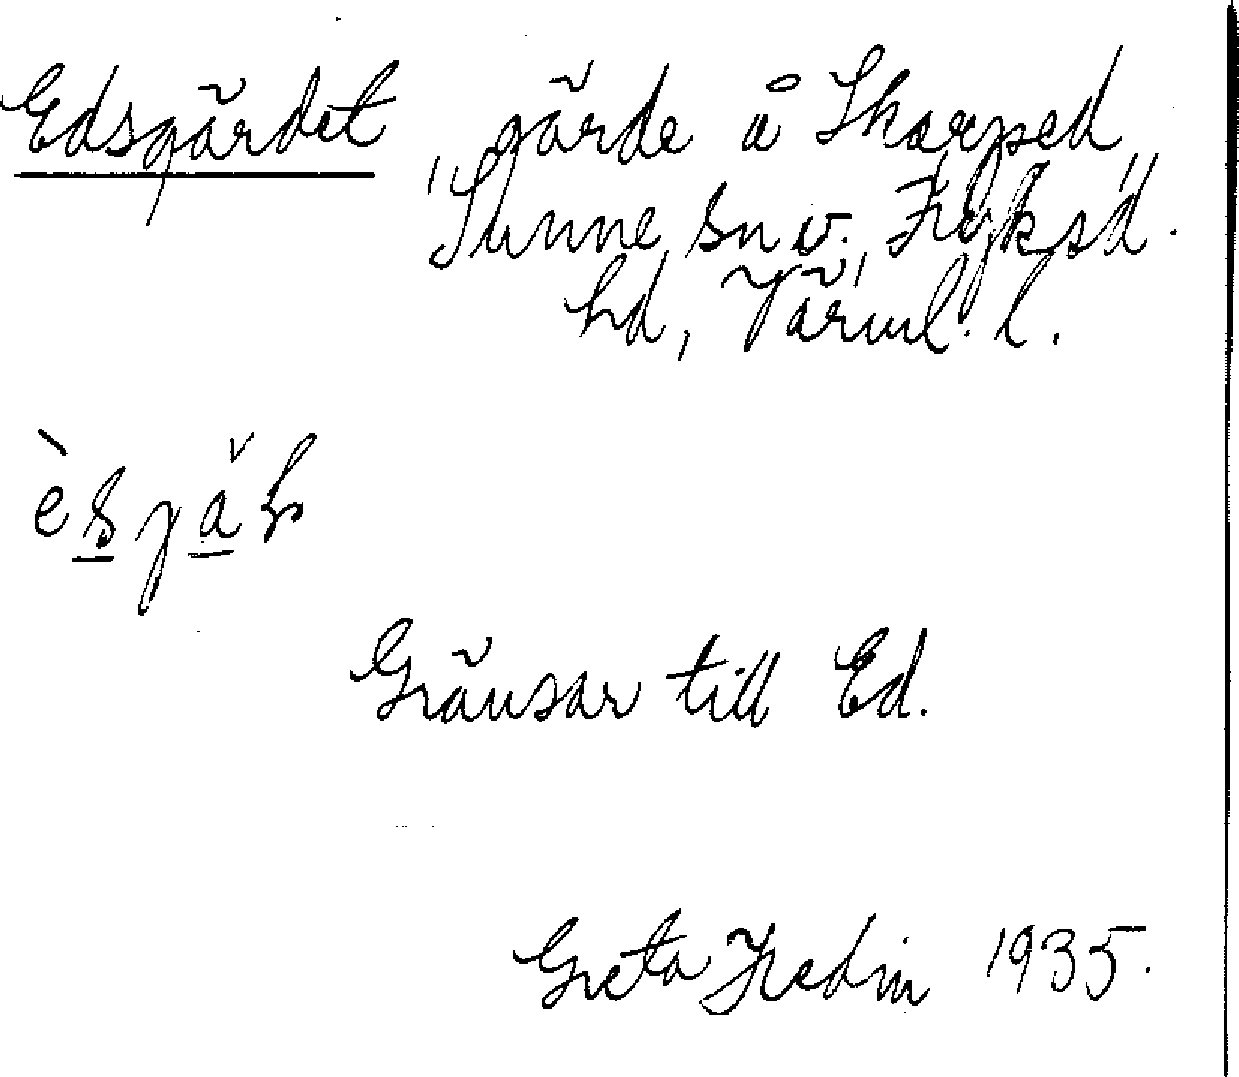 Edsgärdet gärde å Skarped,
Sunne sn v. Fryksd.
hd, Värml. l.
Gränsar till Ed.
Greta Hedin 1935.